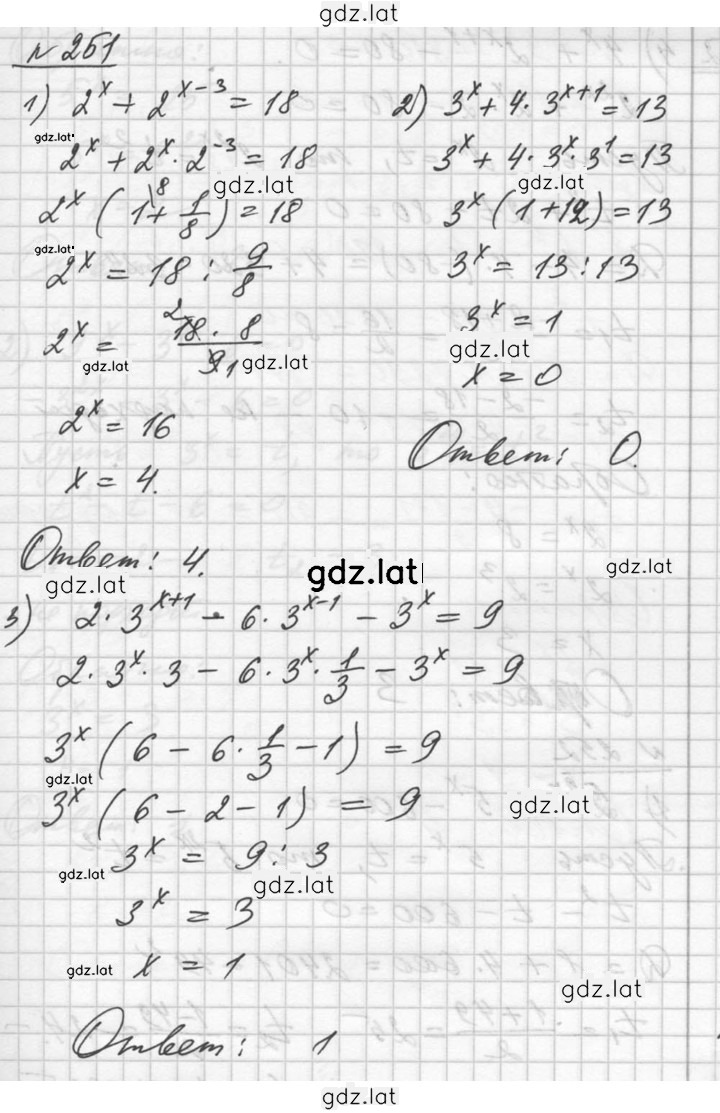 gdz.lat
№ 251
1) 2^x + 2^{x-3} = 18
gdz.lat
2^x + 2^x · 2^{-3} = 18
gdz.lat
2^x (1\8 + 1/8) = 18
gdz.lat
2^x = 18 : 9/8
2^x = 18 · 8 / 9 2 1
gdz.lat
gdz.lat
2^x = 16
x = 4.
Ответ: 4.
gdz.lat
2) 3^x + 4 · 3^{x+1} = 13
3^x + 4 · 3^x · 3^1 = 13
3^x (1 + 12) = 13
3^x = 13 : 13
3^x = 1
gdz.lat
x = 0
Ответ: 0.
gdz.lat
gdz.lat
3) 2 · 3^{x+1} - 6 · 3^{x-1} - 3^x = 9
2 · 3^x · 3 - 6 · 3^x · 1/3 - 3^x = 9
3^x (6 - 6 · 1/3 - 1) = 9
gdz.lat
3^x (6 - 2 - 1) = 9
gdz.lat
3^x = 9 : 3
gdz.lat
gdz.lat
3^x = 3
x = 1
gdz.lat
gdz.lat
Ответ: 1
gdz.lat